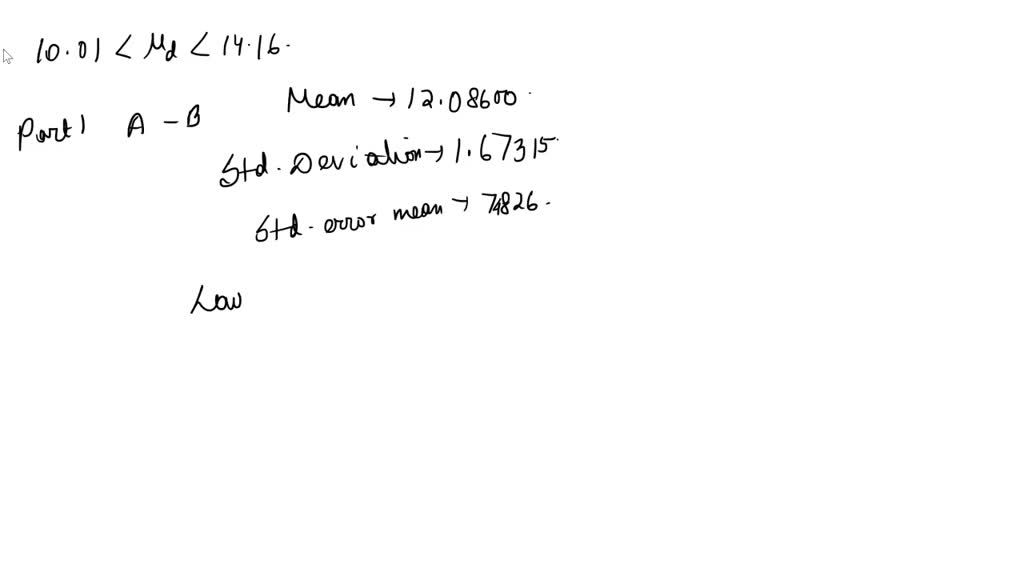 10.01 < μd < 14.16.
Mean → 12.08600.
Part 1 A - B
Std. Deviation → 1.67315.
Std. error mean → 74826.
Low